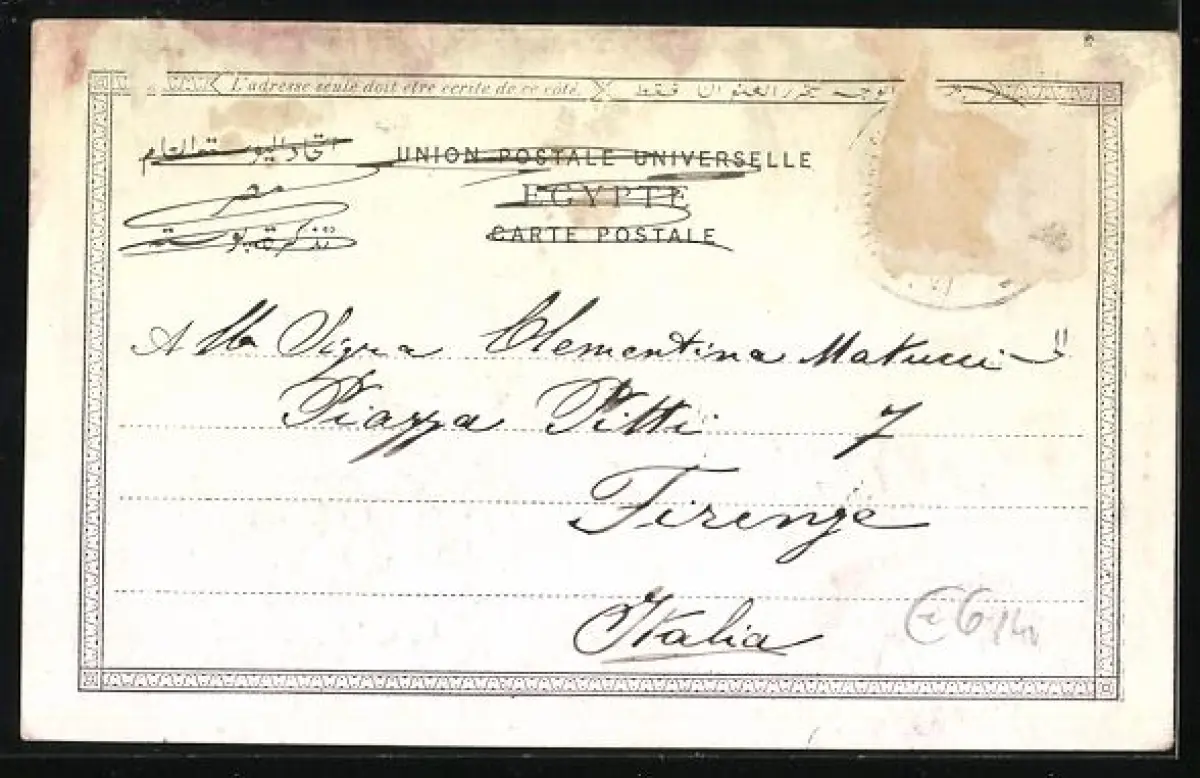 L'adresse seule doit être écrite de ce côté.
اتحاد البوستة العام
UNION POSTALE UNIVERSELLE
مصر
EGYPTE
تذكرة بوستة
CARTE POSTALE
Alla Sigra Clementina Matucci
Piazza Pitti 7
Firenze
Italia